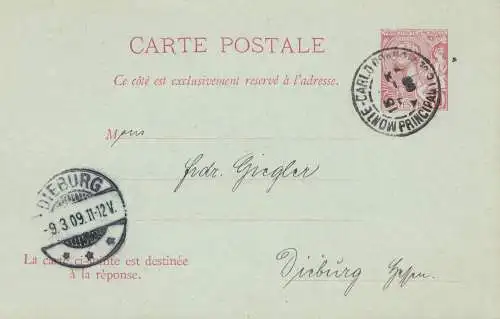 CARTE POSTALE
Ce côté est exclusivement reservé à l'adresse.
MONTE-CARLO
PRINCIPAUTE
M
Frdr. Giegler
DIEBURG
-9.3.09.11-12V.
* * *
La carte ci-jointe est destinée
à la réponse.
Dieburg Hessen.